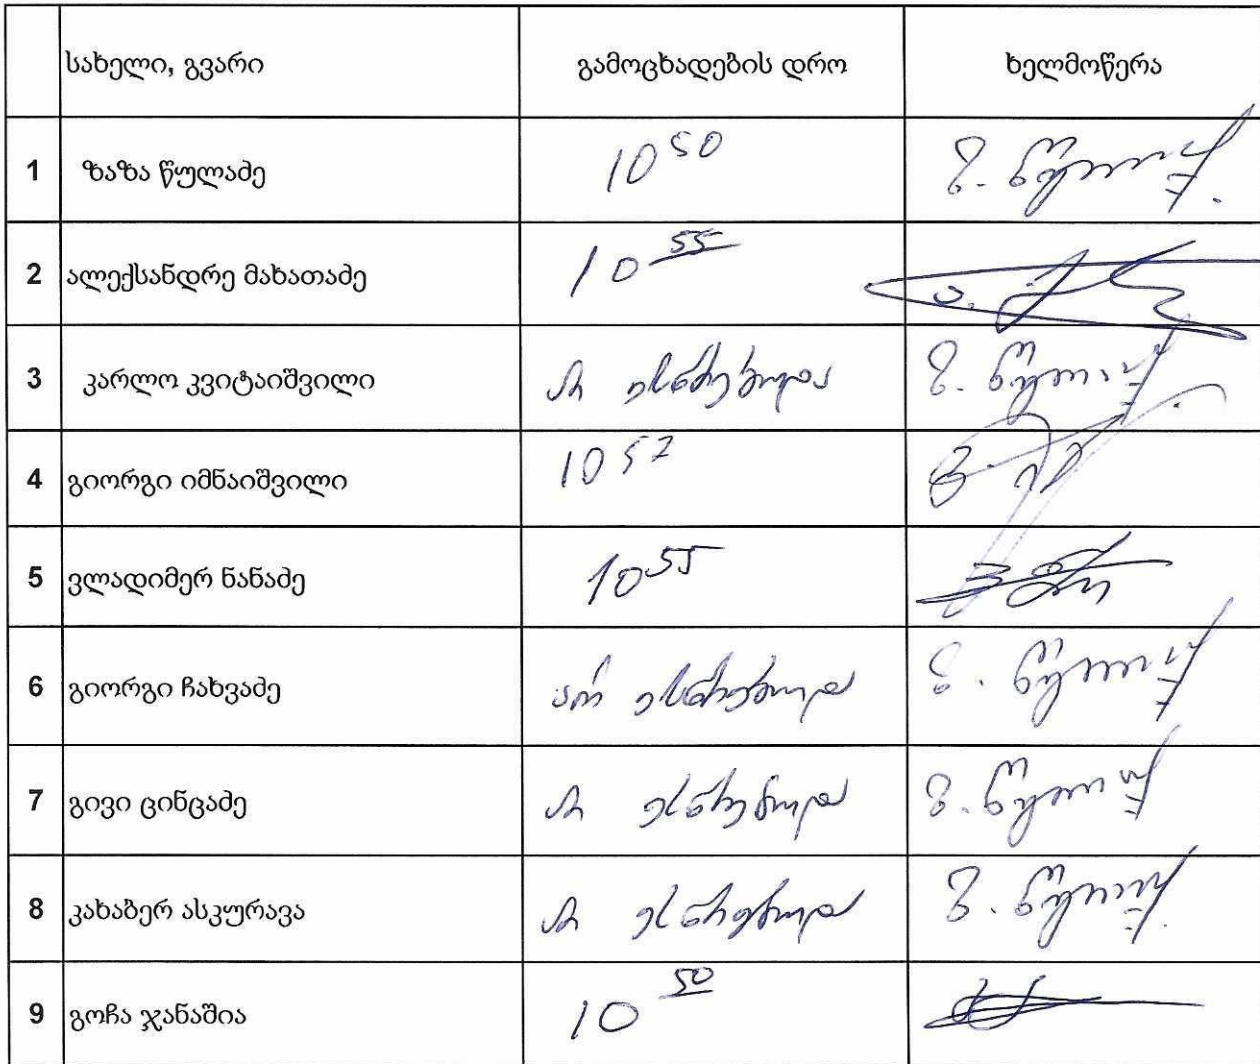 სახელი, გვარი გამოცხადების დრო ხელმოწერა
1 ზაზა წულაძე 10 50 ზ. წულაძე
2 ალექსანდრე მახათაძე 10 55
3 კარლო კვიტაიშვილი არ ესწრებოდა ზ. წულაძე
4 გიორგი იმნაიშვილი 10 57
5 ვლადიმერ ნანაძე 10 55
6 გიორგი ჩახვაძე არ ესწრებოდა ზ. წულაძე
7 გივი ცინცაძე არ ესწრებოდა ზ. წულაძე
8 კახაბერ ასკურავა არ ესწრებოდა ზ. წულაძე
9 გოჩა ჯანაშია 10 50